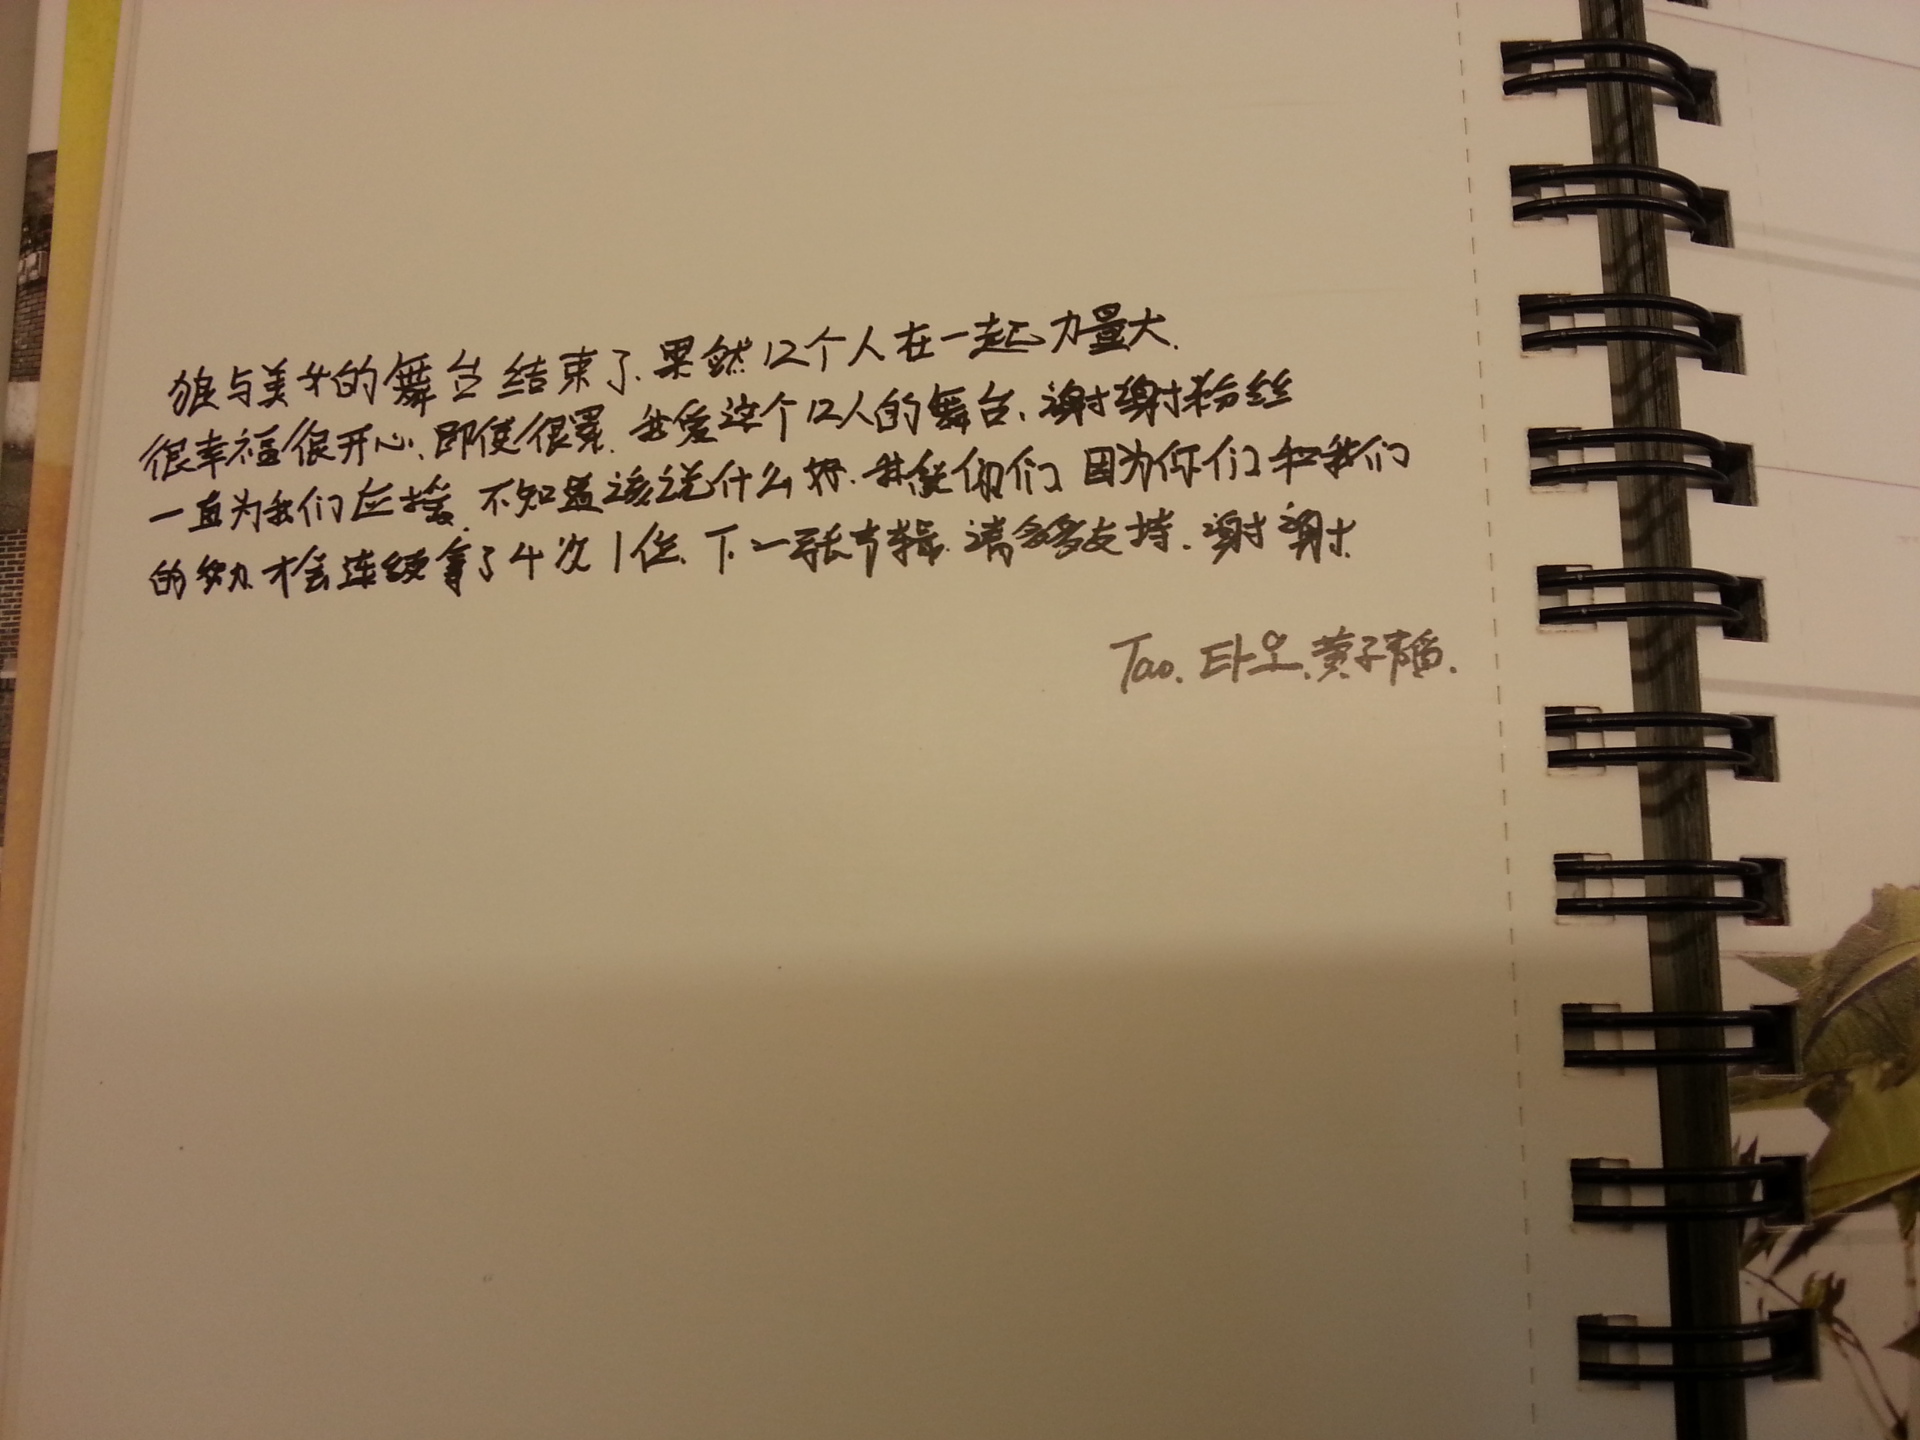 狼与美女的舞台结束了.果然12个人在一起力量大.
很幸福很开心.即使很累.我爱这个12人的舞台.谢谢粉丝
一直为我们应援.不知道该说什么好.我爱你们 因为你们和我们
的努力.才会连续拿了4次1位.下一张专辑.请多多支持.谢谢.
Tao.타오.黄子韬.